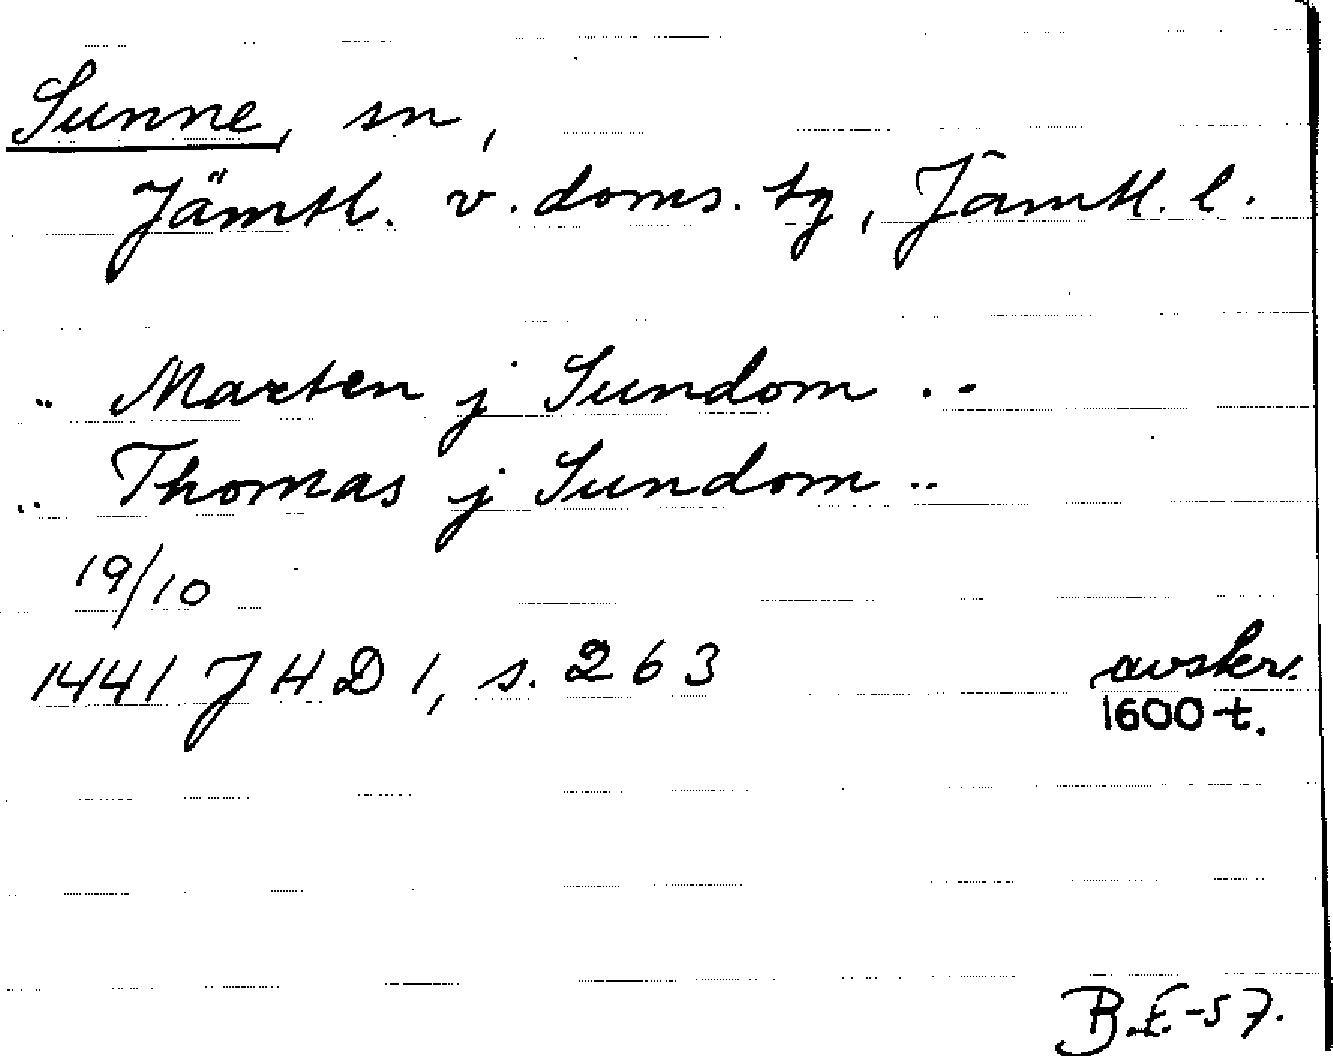 Sunne, sn,
Jämtl. v. doms. tg, Jämtl. l.
.. Marten j Sundom ..
.. Thomas j Sundom ..
19/10
1441 J H D 1, s. 263 avskr.
1600-t.
B.E-57.